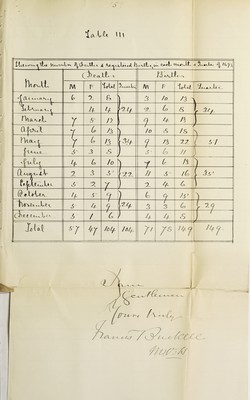 Table III
Shewing the number of Deaths & registered Births, in each month & Quarter of 1892
Deaths Births
Month M F Total Quarter M F Total Quarter
January 6 2 8 3 10 13
February 4 4 24 2 6 8 34
March 7 5 12 9 4 13
April 7 6 13 10 5 15
May 7 6 13 34 9 13 22 51
June 5 3 8
July 4 6 10 7 6 13
August 2 3 5 22 11 5 16 35
September 5 2 7 2 4 6
October 4 5 9 6 9 15
November 5 4 9 24 3 3 6 29
December 5 1 6 4 4 8
Total 57 47 104 104 71 78 149 149
I am
Gentlemen
Yours truly
Francis T Bu
MOH